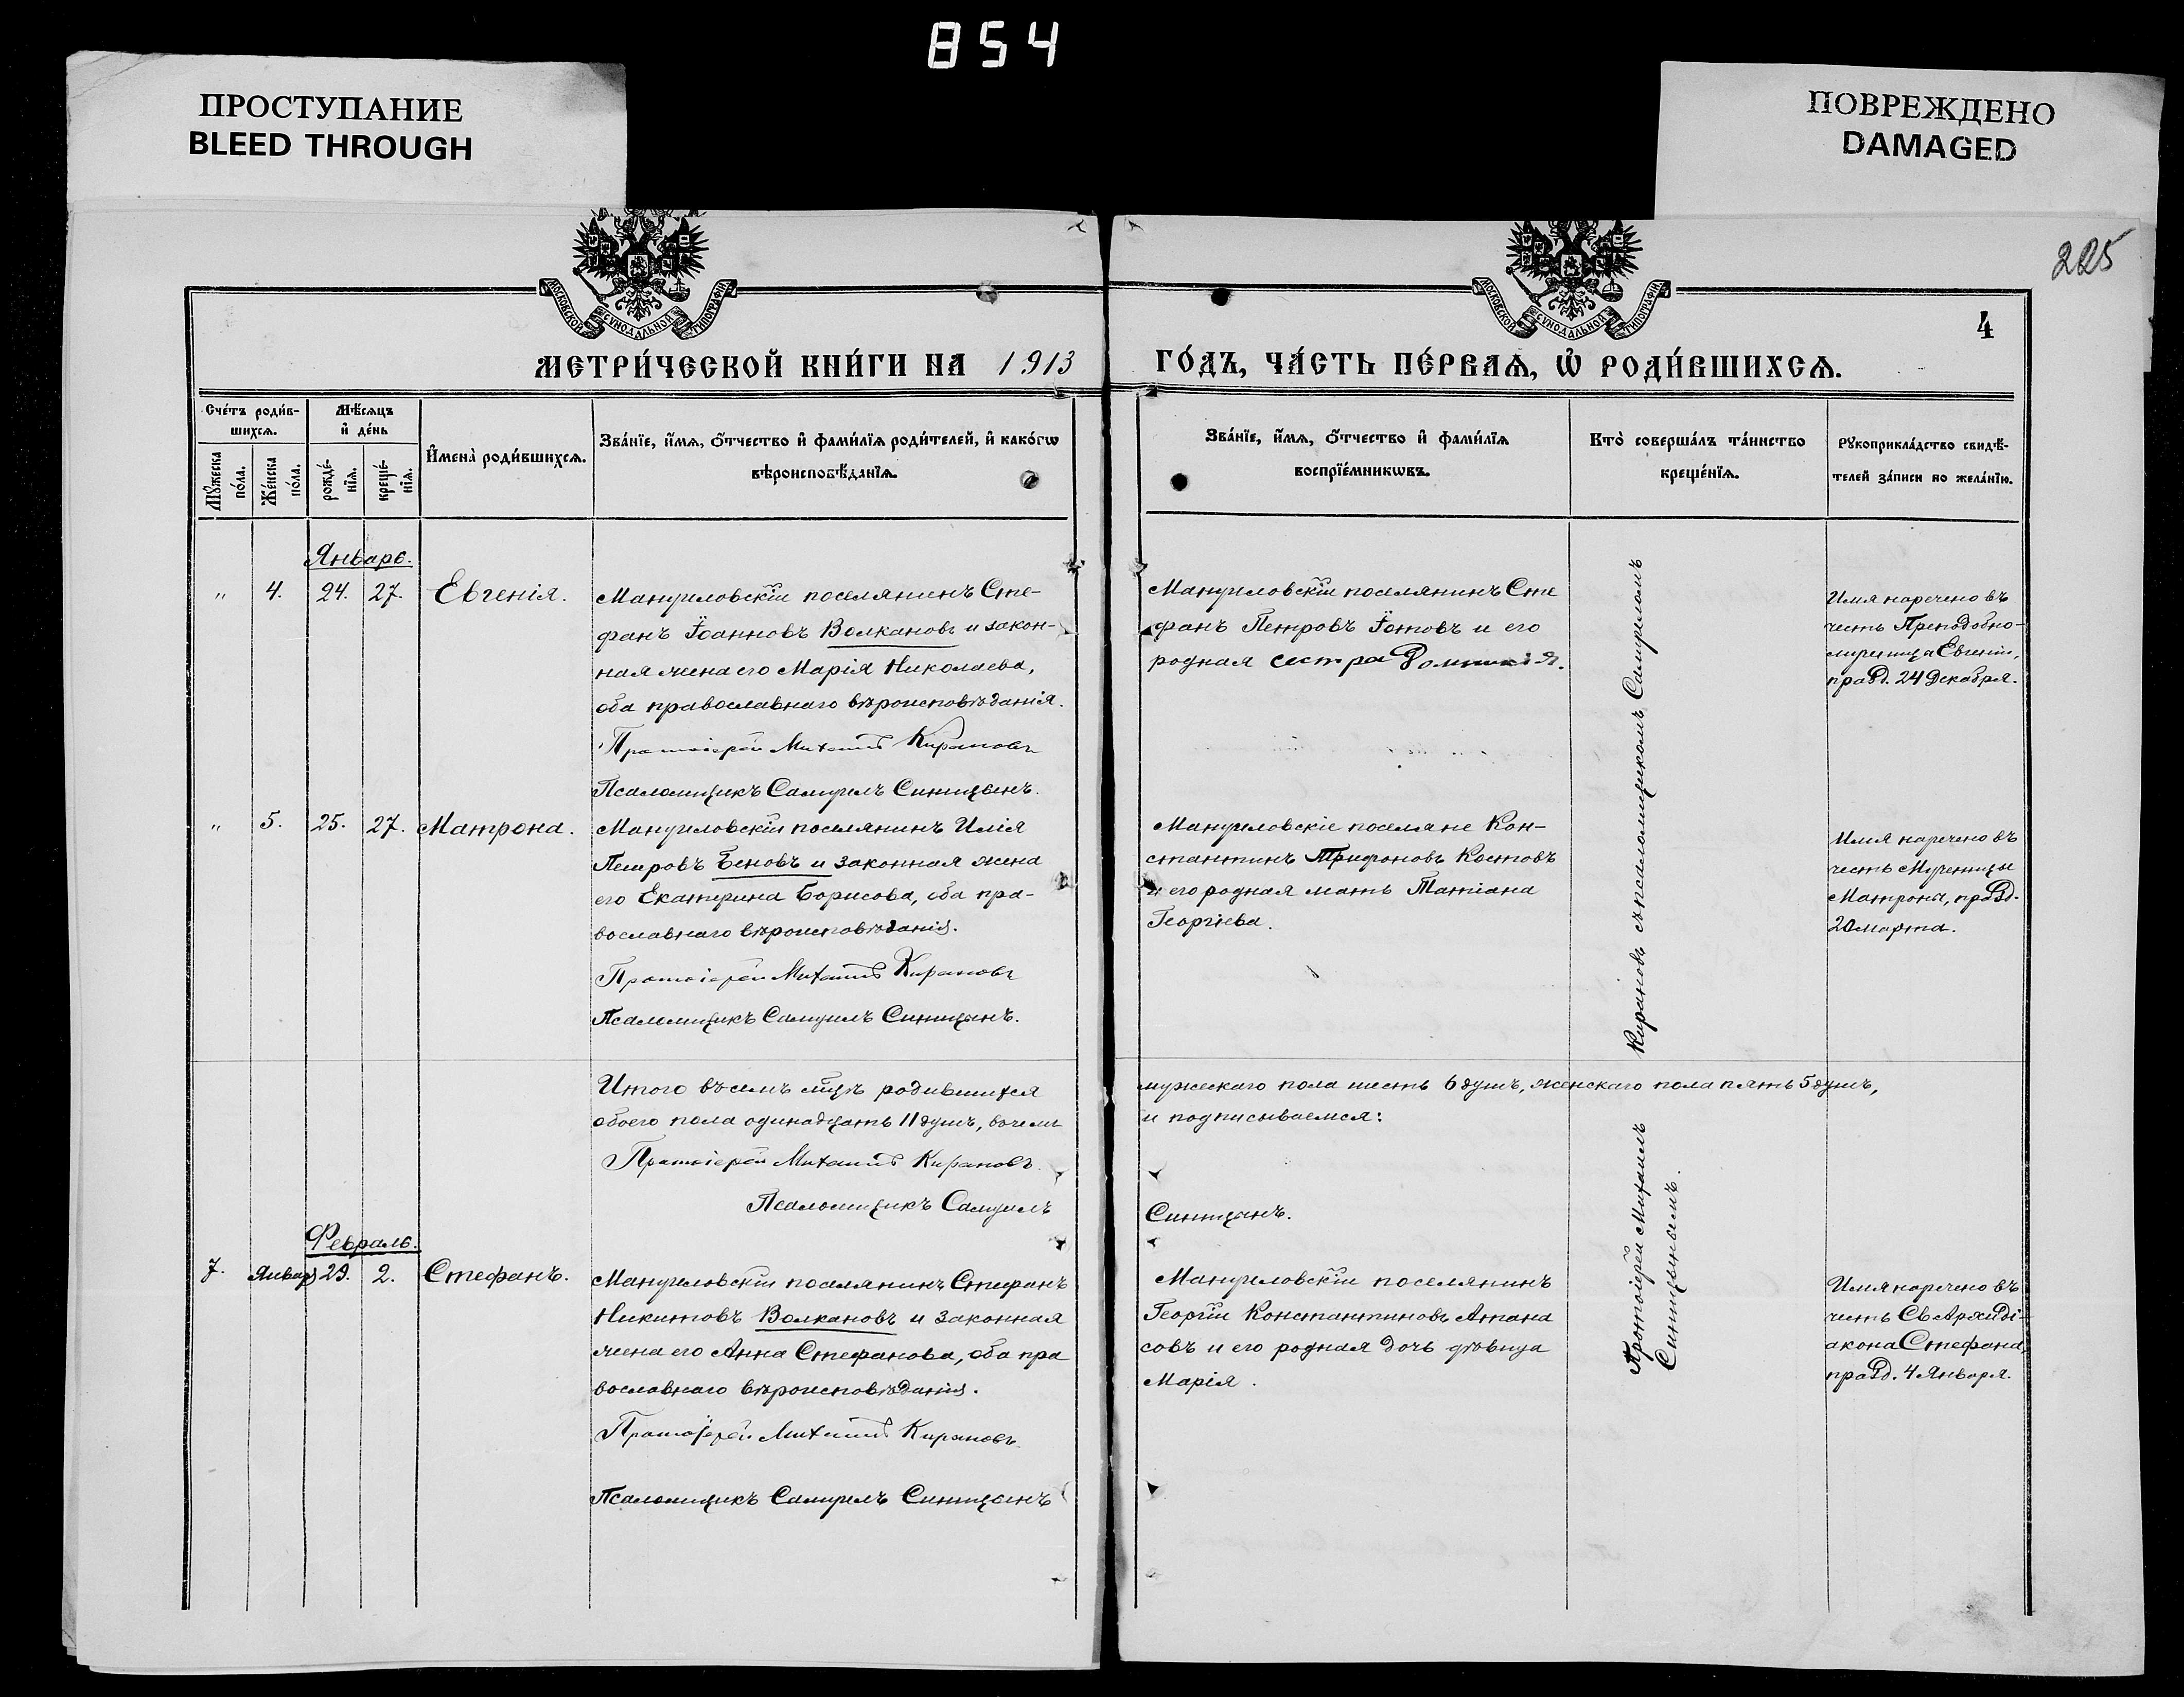 854
ПРОСТУПАНИЕ
BLEED THROUGH
ПОВРЕЖДЕНО
DAMAGED
225
4
МОСКОВСКОЙ СѴНОДАЛЬНОЙ ТИПОГРАФІИ
МОСКОВСКОЙ СѴНОДАЛЬНОЙ ТИПОГРАФІИ
МЕТРИ́ЧЕСКОЙ КНИ́ГИ НА 1913 ГО́ДЪ, ЧА́СТЬ ПЕ́РВАѦ, Ѡ҆ РОДИ́ВШИХСѦ.
Сче́тъ роди́в-
шихсѧ.
Мѣ́сѧцъ
и҆ де́нь
Мꙋ́жеска
по́ла.
Же́нска
по́ла.
рожде́-
нїѧ.
креще́-
нїѧ.
И҆мена̀ роди́вшихсѧ.
Зва́нїе, и҆́мѧ, о҆́тчество и҆ фами́лїѧ роди́телей, и҆ како́гѡ
вѣроисповѣ́данїѧ.
Зва́нїе, и҆́мѧ, о҆́тчество и҆ фами́лїѧ
воспрїе́мникѡвъ.
Кто̀ соверша́лъ та́инство
креще́нїѧ.
Рꙋкоприкла́дство свидѣ́-
телей за́писи по жела́нїю.
Январь.
" 4. 24. 27. Евгенія.
Мануиловскій поселянинъ Сте-
фанъ Іоанновъ Волкановъ и закон-
ная жена его Марія Николаева,
оба православнаго вѣроисповѣданія.
Протоіерей Михаилъ Кирановъ
Псаломщикъ Самуилъ Синицынъ.
Мануиловскій поселянинъ Сте
фанъ Петровъ Іотовъ и его
родная сестра Домникія.
Имя наречено въ
честь Преподобно-
мученица Евгеніи,
празд. 24 Декабря.
" 5. 25. 27. Матрона.
Мануиловскій поселянинъ Илія
Петровъ Беновъ и законная жена
его Екатерина Борисова, оба пра-
вославнаго вѣроисповѣданія.
Протоіерей Михаилъ Кирановъ
Псаломщикъ Самуилъ Синицынъ.
Мануиловскіе поселяне Кон-
стантинъ Трифоновъ Костовъ
и его родная мать Татіана
Георгіева.
Имя наречено въ
честь Мученицы
Матроны, празд.
20 марта.
Итого въ семъ мѣсяцѣ родившихся
обоего пола одинадцать 11 душъ, въ чемъ
мужескаго пола шесть 6 душъ, женскаго пола пять 5 душъ,
и подписываемся:
Протоіерей Михаилъ Кирановъ.
Псаломщикъ Самуилъ
Синицынъ.
Февраль.
7. Январь 29. 2. Стефанъ.
Мануиловскій поселянинъ Стефанъ
Никитовъ Волкановъ и законная
жена его Анна Стефанова, оба пра
вославнаго вѣроисповѣданія.
Протоіерей Михаилъ Кирановъ.
Псаломщикъ Самуилъ Синицынъ
Мануиловскій поселянинъ
Георгій Константиновъ Атана
совъ и его родная дочь дѣвица
Марія.
Протоіерей Михаилъ Кирановъ съ псаломщикомъ Самуиломъ
Синицынымъ.
Имя наречено въ
честь Св Архиді-
акона Стефана,
празд. 4 Января.